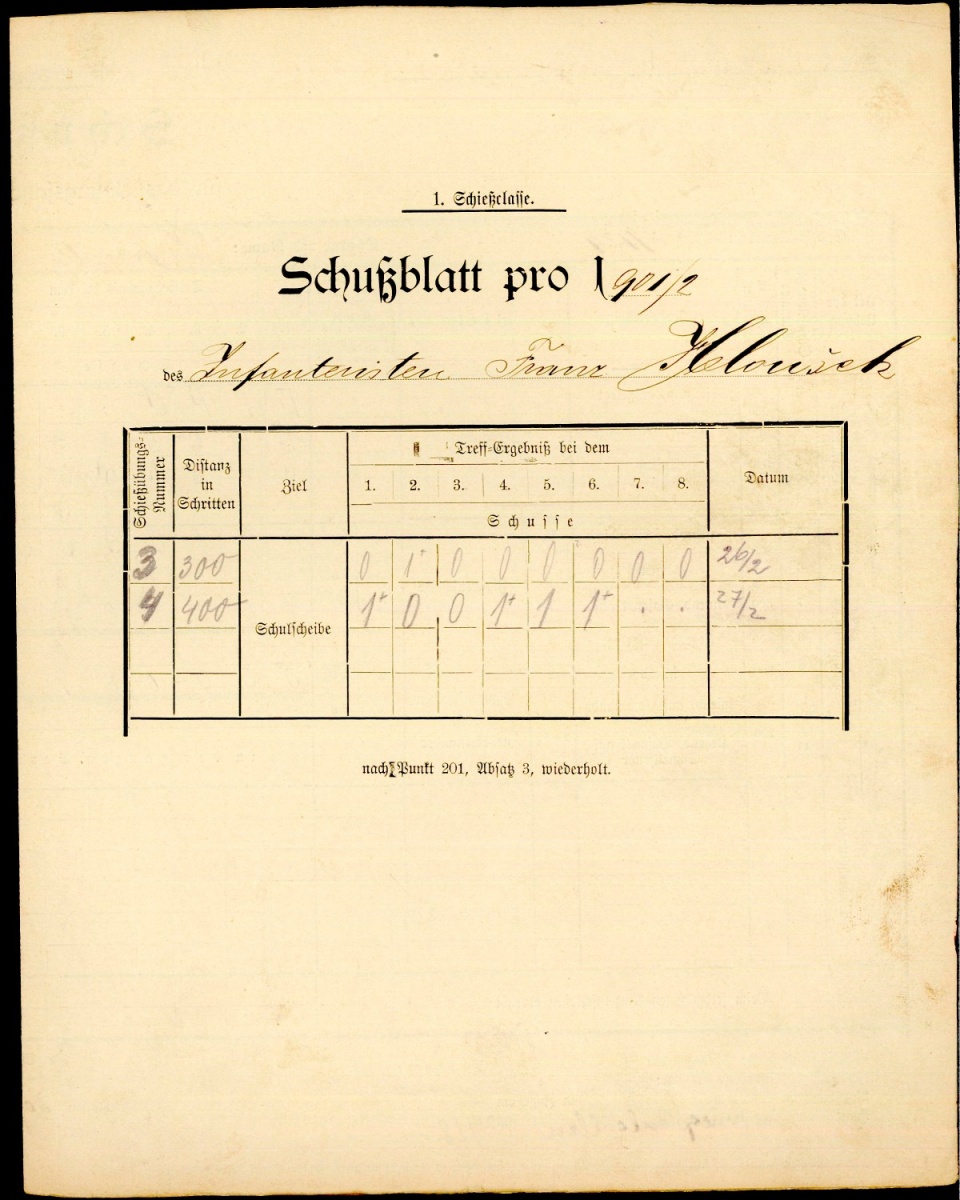 1. Schießclasse.
Schußblatt pro 1901/2
des Infanteristen Franz Hloušek
Schießübungs-Nummer
Distanz in Schritten
Ziel
Treff-Ergebniß bei dem
1. 2. 3. 4. 5. 6. 7. 8.
Schusse
Datum
3 300 0 1+ 0 0 0 0 0 0 26/2
4 400 1+ 0 0 1+ 1 1+ . . 27/2
Schulscheibe
nach Punkt 201, Absatz 3, wiederholt.